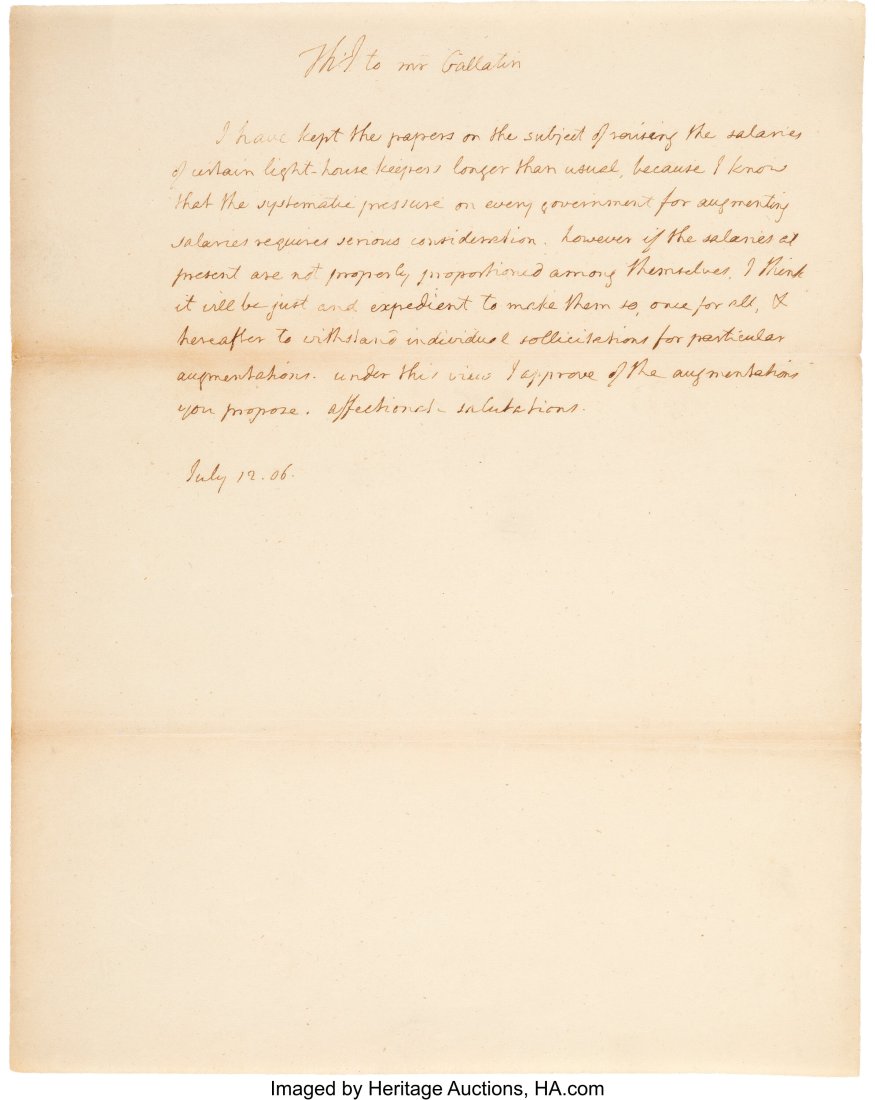 Th: J to mr Gallatin
I have kept the papers on the subject of raising the salaries
of certain light-house keepers longer than usual, because I know
that the systematic pressure on every government for augmenting
salaries requires serious consideration. however if the salaries at
present are not properly proportioned among themselves, I think
it will be just and expedient to make them so, once for all, &
hereafter to withstand individual sollicitations for particular
augmentations. under this view I approve of the augmentations
you propose. affectionate salutations.
July 12. 06.
Imaged by Heritage Auctions, HA.com